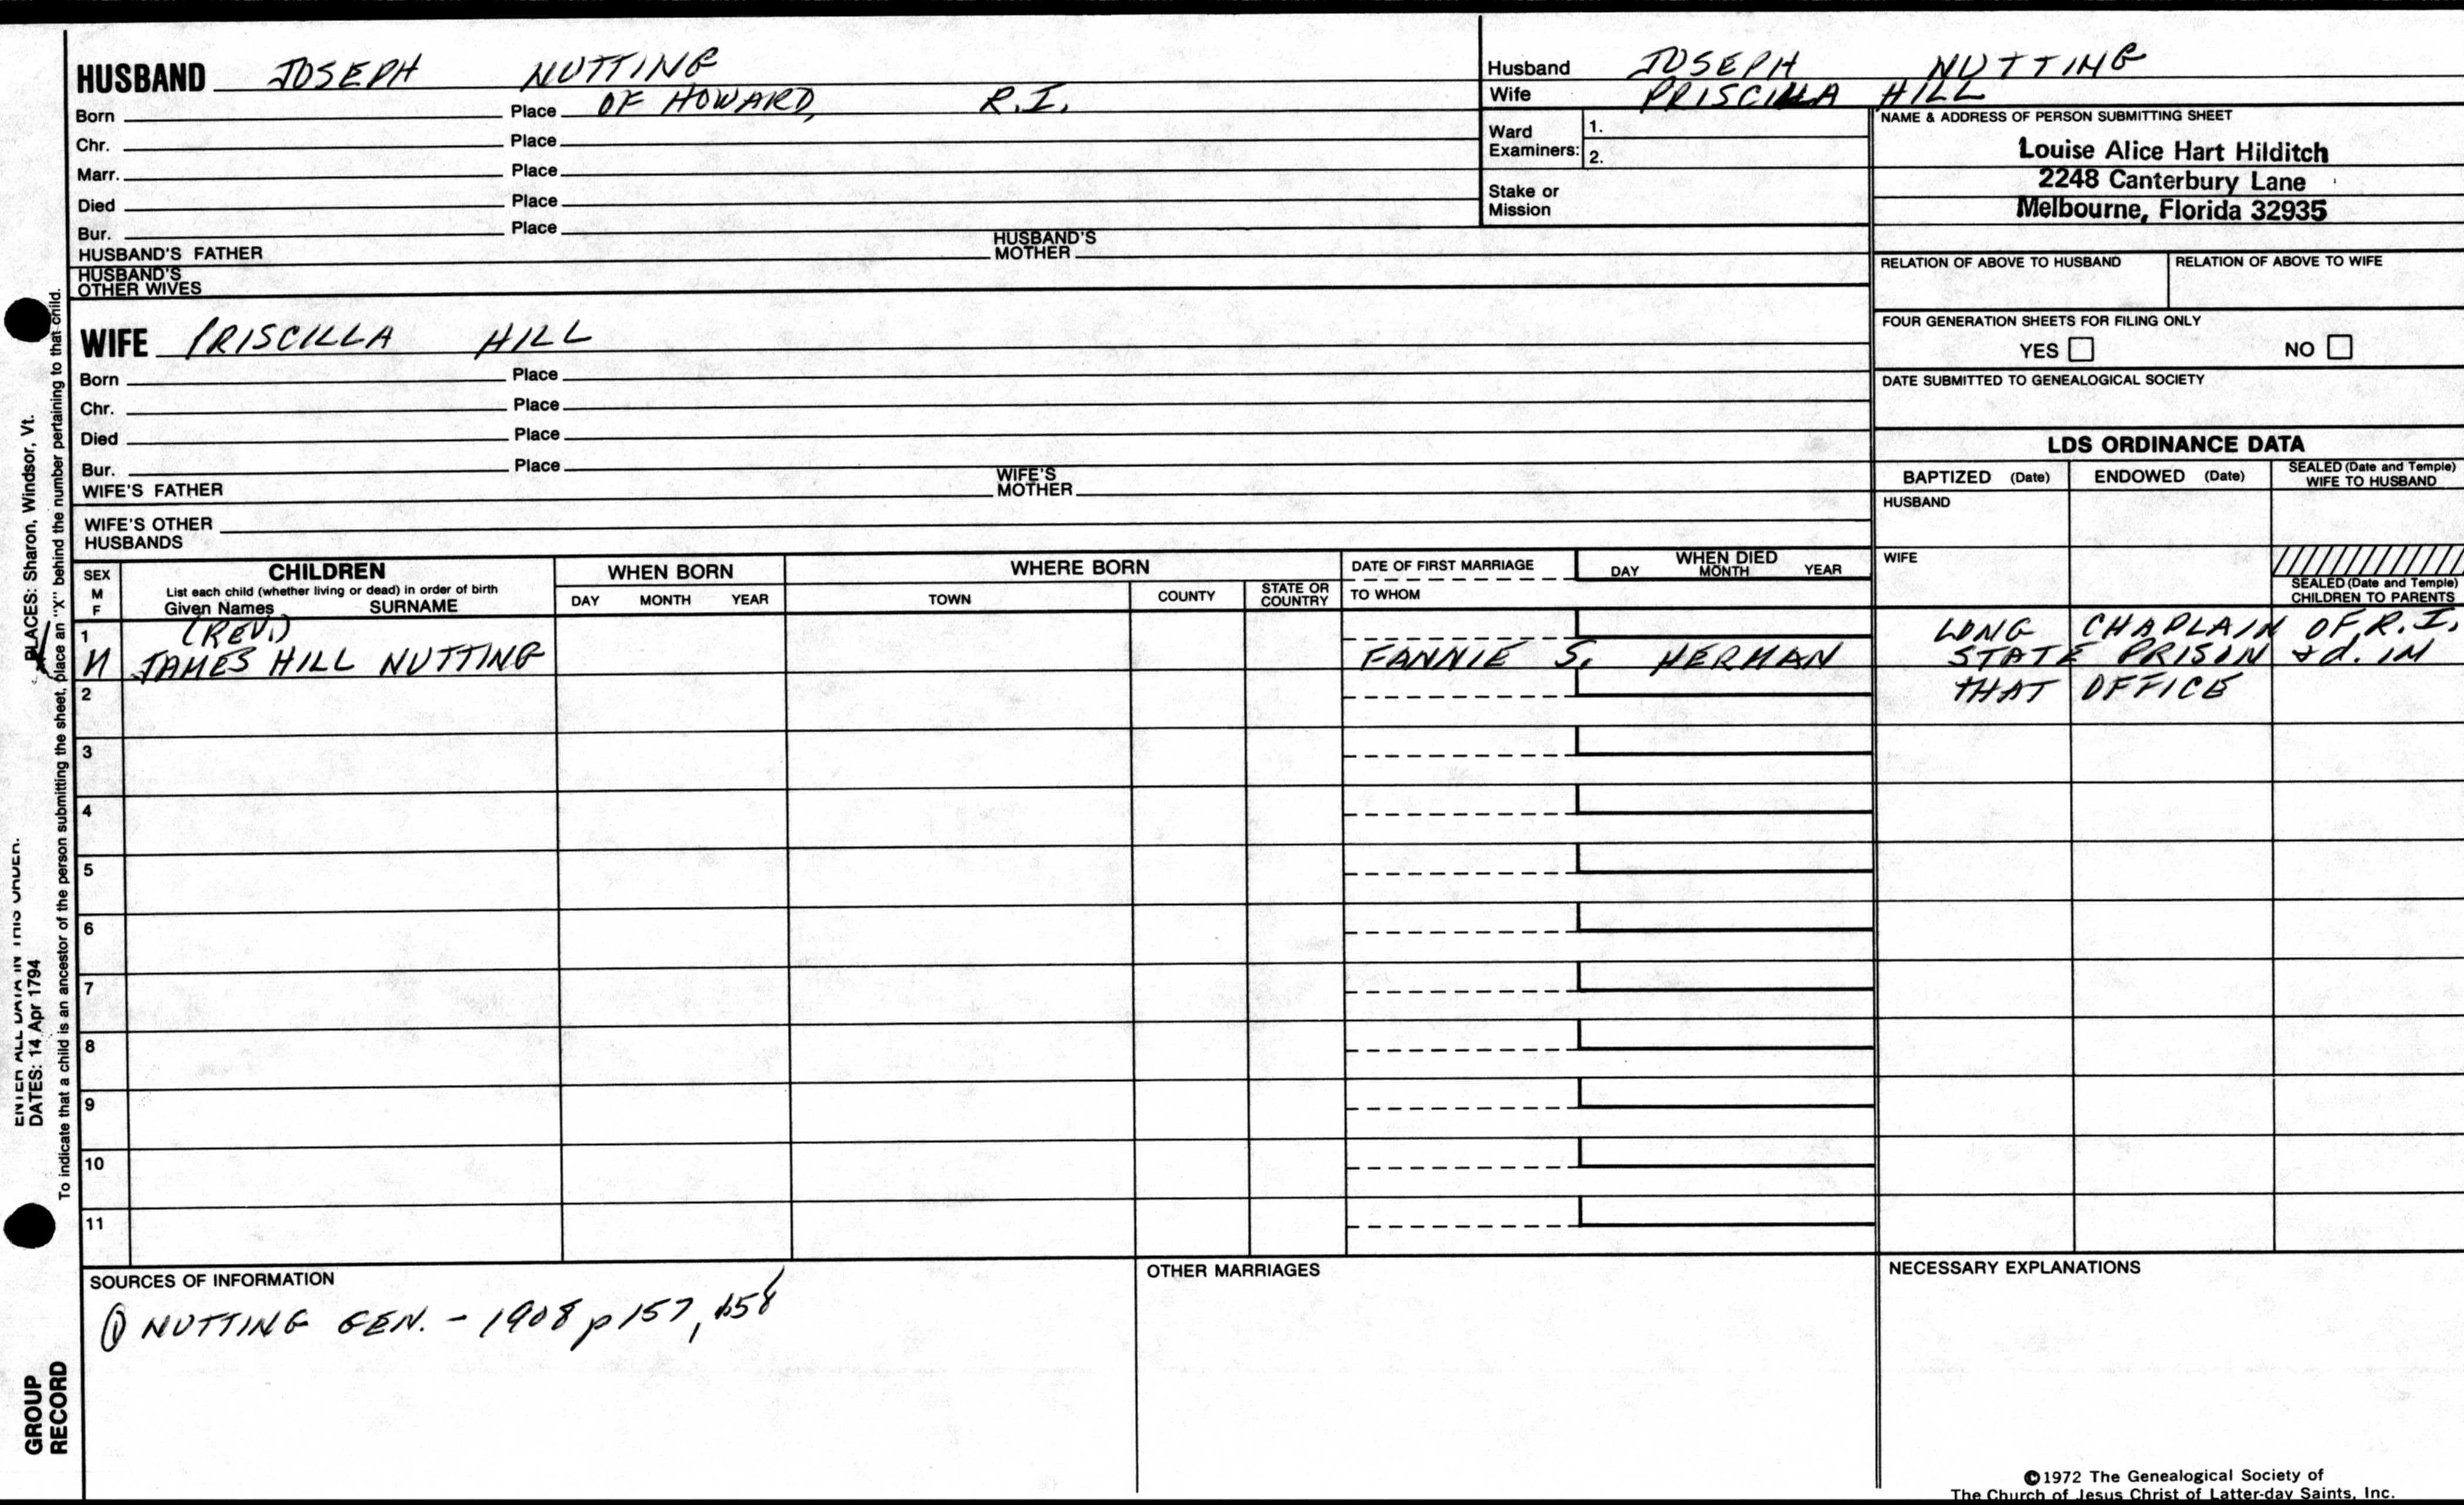 HUSBAND JOSEPH NUTTING
Born Place OF HOWARD, R.I.
Chr. Place
Marr. Place
Died Place
Bur. Place
HUSBAND'S FATHER HUSBAND'S MOTHER
HUSBAND'S OTHER WIVES
Husband JOSEPH NUTTING
Wife PRISCILLA HILL
Ward Examiners: 1.
2.
Stake or Mission
NAME & ADDRESS OF PERSON SUBMITTING SHEET
Louise Alice Hart Hilditch
2248 Canterbury Lane
Melbourne, Florida 32935
RELATION OF ABOVE TO HUSBAND RELATION OF ABOVE TO WIFE
FOUR GENERATION SHEETS FOR FILING ONLY
YES NO
DATE SUBMITTED TO GENEALOGICAL SOCIETY
WIFE PRISCILLA HILL
Born Place
Chr. Place
Died Place
Bur. Place
WIFE'S FATHER WIFE'S MOTHER
WIFE'S OTHER HUSBANDS
LDS ORDINANCE DATA
BAPTIZED (Date) ENDOWED (Date) SEALED (Date and Temple) WIFE TO HUSBAND
HUSBAND
WIFE
SEALED (Date and Temple) CHILDREN TO PARENTS
SEX M F
CHILDREN
List each child (whether living or dead) in order of birth
Given Names SURNAME
WHEN BORN
DAY MONTH YEAR
WHERE BORN
TOWN COUNTY STATE OR COUNTRY
DATE OF FIRST MARRIAGE
TO WHOM
WHEN DIED
DAY MONTH YEAR
1 (REV.) LONG CHAPLAIN OF R.I.
M JAMES HILL NUTTING FANNIE S. HERMAN STATE PRISON & d. IM
2 THAT OFFICE
3
4
5
6
7
8
9
10
11
SOURCES OF INFORMATION
① NUTTING GEN. - 1908 p 157, 158
OTHER MARRIAGES
NECESSARY EXPLANATIONS
©1972 The Genealogical Society of
The Church of Jesus Christ of Latter-day Saints, Inc.
ENTER ALL DATA IN THIS ORDER.
DATES: 14 Apr 1794
PLACES: Sharon, Windsor, Vt.
To indicate that a child is an ancestor of the person submitting the sheet, place an "X" behind the number pertaining to that child.
GROUP
RECORD